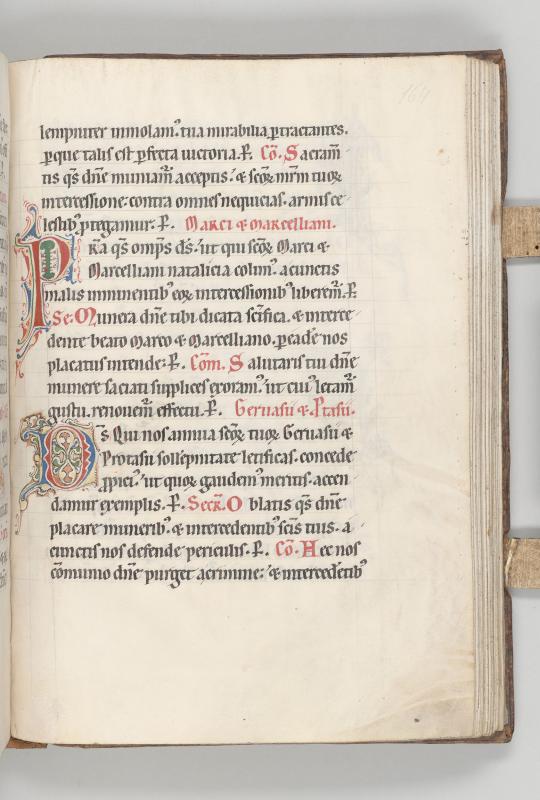 164
lempniter immolam᷒ tua mirabilia ꝑtractantes.
ꝑ que talis est ꝑfecta uictoria. ꝑ. Cō. Sacram̄
tis q̄s dn̄e muniam̄ acceptis ⁊ scōꝝ mr̄m tuoꝝ
intercessione contra omnes nequicias. armis ce
lestib᷒ ꝓtegamur. ꝑ. Marci ⁊ Marcelliani.
PR̄a q̄s omps d̄s. ut qui scōꝝ Marci ⁊
Marcelliani natalicia colim᷒. a cunctis
malis imminentib᷒ eoꝝ intercessionib᷒ liberem̄. ꝑ
Se. Munera dn̄e tibi dicata sc̄ifica. ⁊ interce
dente beato Marco ⁊ Marcelliano. ꝑ eadē nos
placatus intende. ꝑ. Com̄. Salutaris tui dn̄e
munere saciati supplices exoram᷒. ut cui᷒ letam̄
gustu. renouem̄ effectu. ꝑ. Geruasii ⁊ Ꝓtasii.
Ds̄. Qui nos annua scōꝝ tuoꝝ Geruasii ⁊
Protasii sollēpnitate letificas. concede
ꝓpici᷒. ut quoꝝ gaudem᷒ meritis. accen
damur exemplis. ꝑ. Secr̄. Oblatis q̄s dn̄e
placare munerib᷒. ⁊ intercedentib᷒ sc̄is tuis. a
cunctis nos defende periculis. ꝑ. Cō. Hec nos
cōmunio dn̄e purget a crimine. ⁊ intercedētib᷒